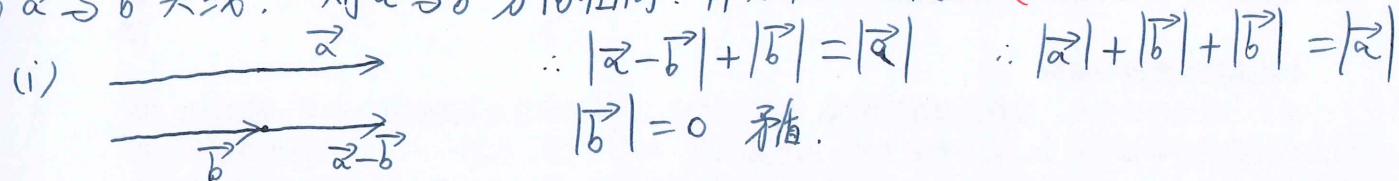 (i) $\vec{a}$ ∴ $|\vec{a}-\vec{b}|+|\vec{b}|=|\vec{a}|$ ∴ $|\vec{a}|+|\vec{b}|+|\vec{b}|=|\vec{a}|$
$\vec{b}$ $\vec{a}-\vec{b}$ $|\vec{b}|=0$ 矛盾.